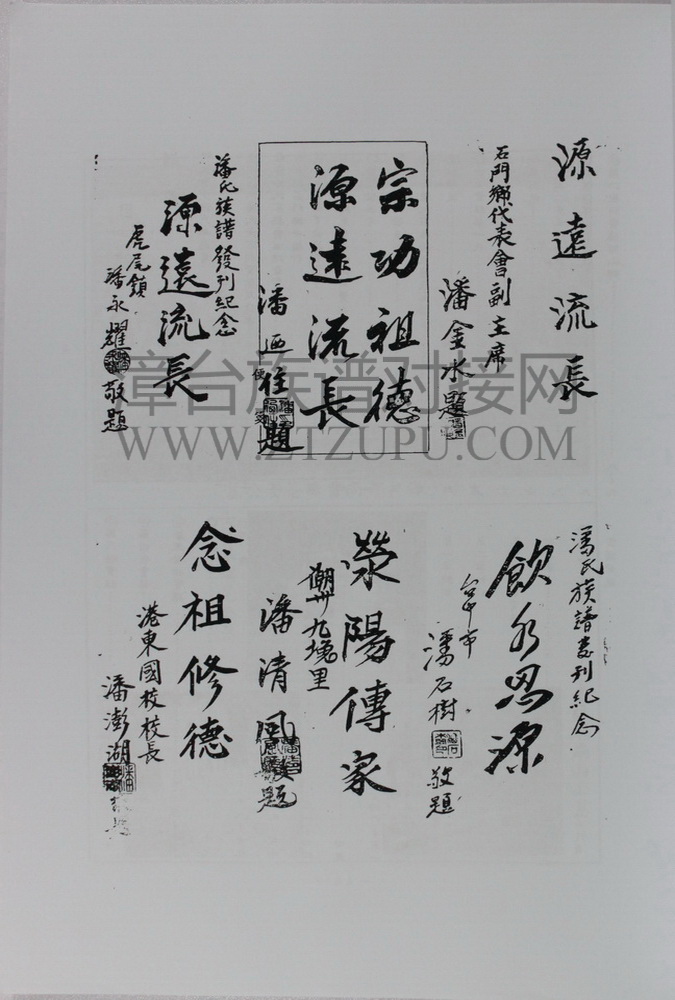 源遠流長
石門鄉代表會副主席
潘金水題
宗功祖德
源遠流長
潘
題
潘氏族譜發刊紀念
源遠流長
虎尾鎮
潘永耀敬題
章台族谱对接网
WWW.ZTZUPU.COM
潘氏族譜發刊紀念
飲水思源
台中市
潘石樹敬題
滎陽傳家
潮州九塊里
潘清風敬題
念祖修德
港東國校校長
潘澎湖